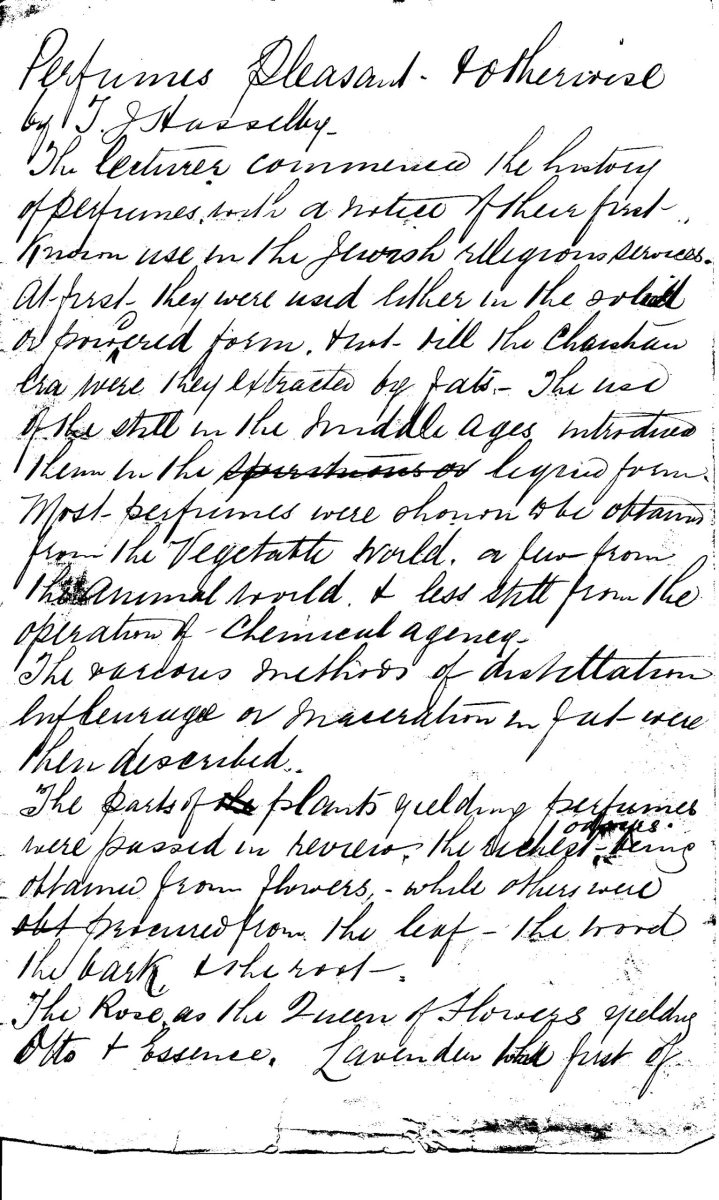 Perfumes Pleasant & otherwise
by T. J Hasselby
The lecturer commenced the history
of perfumes, with a notice of their first
known use in the Jewish religious services.
At first they were used either in the solid
or powdered form, & not till the Christian
era were they extracted by fats - The use
of the still in the Middle Ages introduced
them in the spirituous or liquid form.
Most perfumes were shown to be obtained
from the Vegetable World, a few from
the Animal world, & less still from the
operation of chemical agency.
The various methods of distillation
enfleurage or maceration in fat were
then described.
The parts of the plants yielding perfumes
were passed in review, the richest odours being
obtained from flowers, - while others were
obt procured from the leaf - the wood
the bark, & the root.
The Rose, as the Queen of Flowers yielding
Otto & Essence. Lavender first of